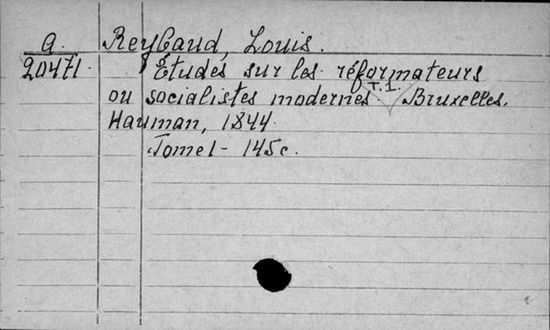 a. Reybaud, Louis.
20471. Études sur les réformateurs
ou socialistes modernes. T.1. Bruxelles,
Hauman, 1844.
Tome 1 - 145 c.